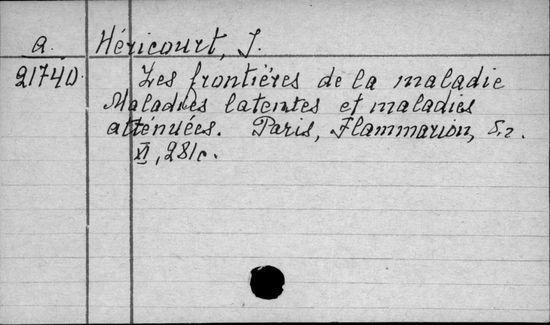 a. Héricourt, J.
21740. Les frontières de la maladie
Maladies latentes et maladies
atténuées. Paris, Flammarion, s.a.
XI, 281c.